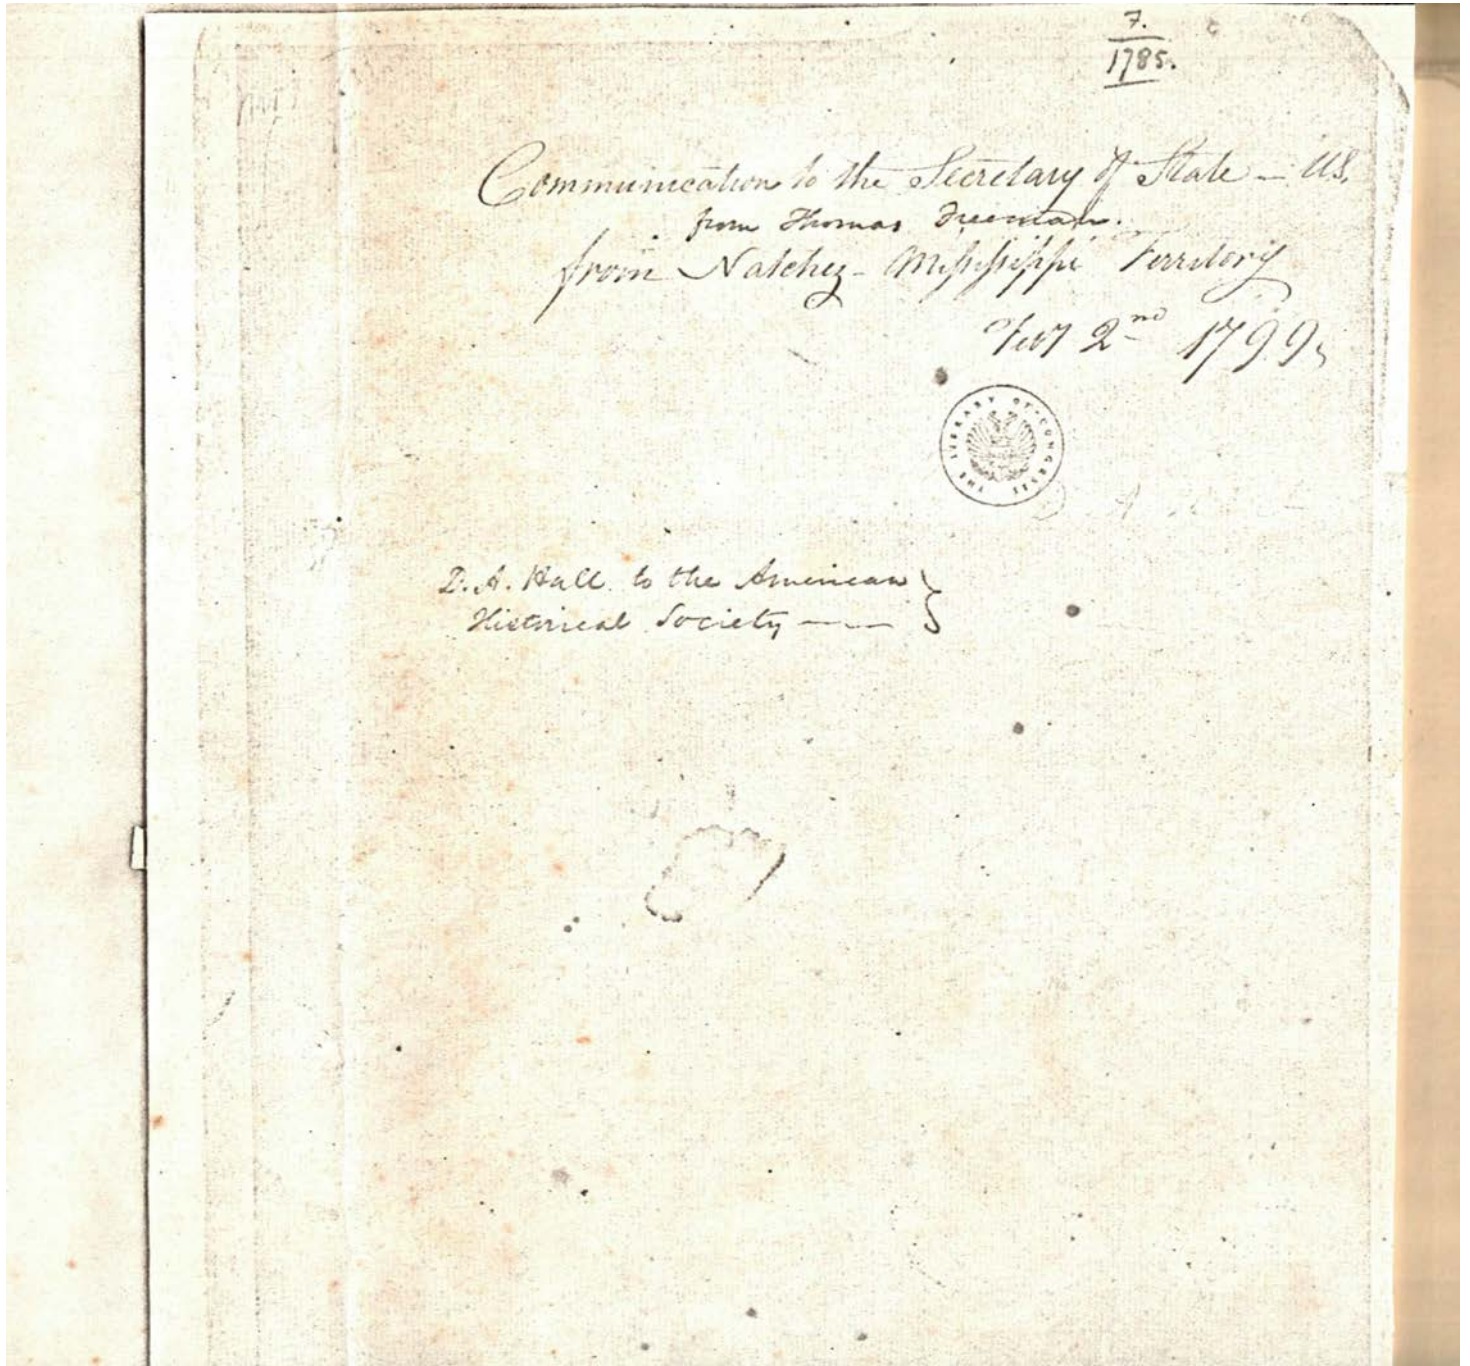 7.
1785.
Communication to the Secretary of State — US.
from Thomas Freeman.
from Natchez - Mississippi Territory
2nd 1799,
THE LIBRARY OF CONGRESS
D. A. Hall to the American
Historical Society